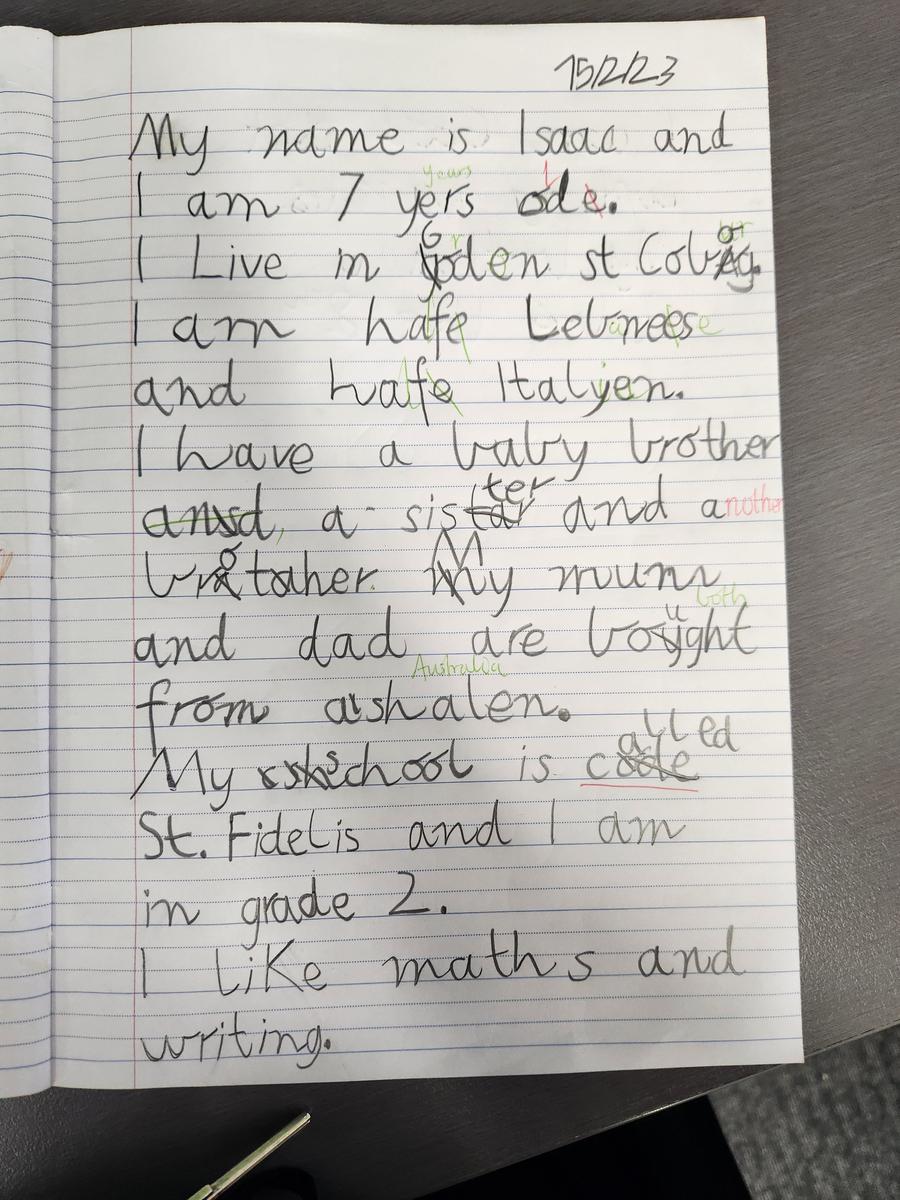 15/2/23
My name is Isaac and
years
I am 7 yers ode.
I Live in Goden st Coborg.
I am hafe Lebneese
and hafe Italyen.
I have a baby brother
a sister and another
brotaher. My mum
both
and dad are bought
Australia
from ashalen.
My school is called
St. Fidelis and I am
in grade 2.
I Like maths and
writing.